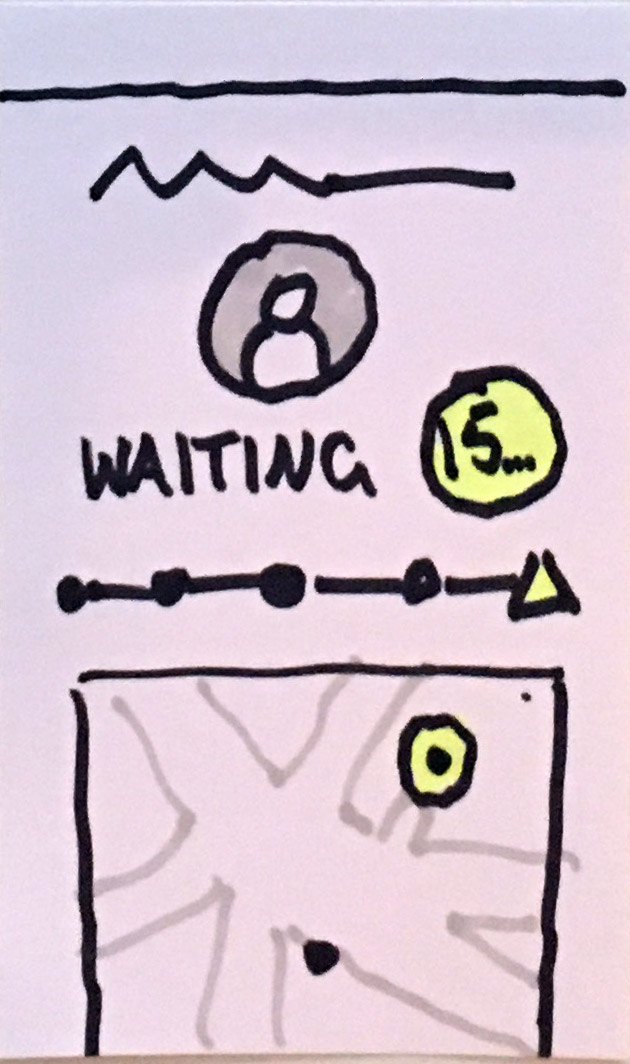 WAITING
15...